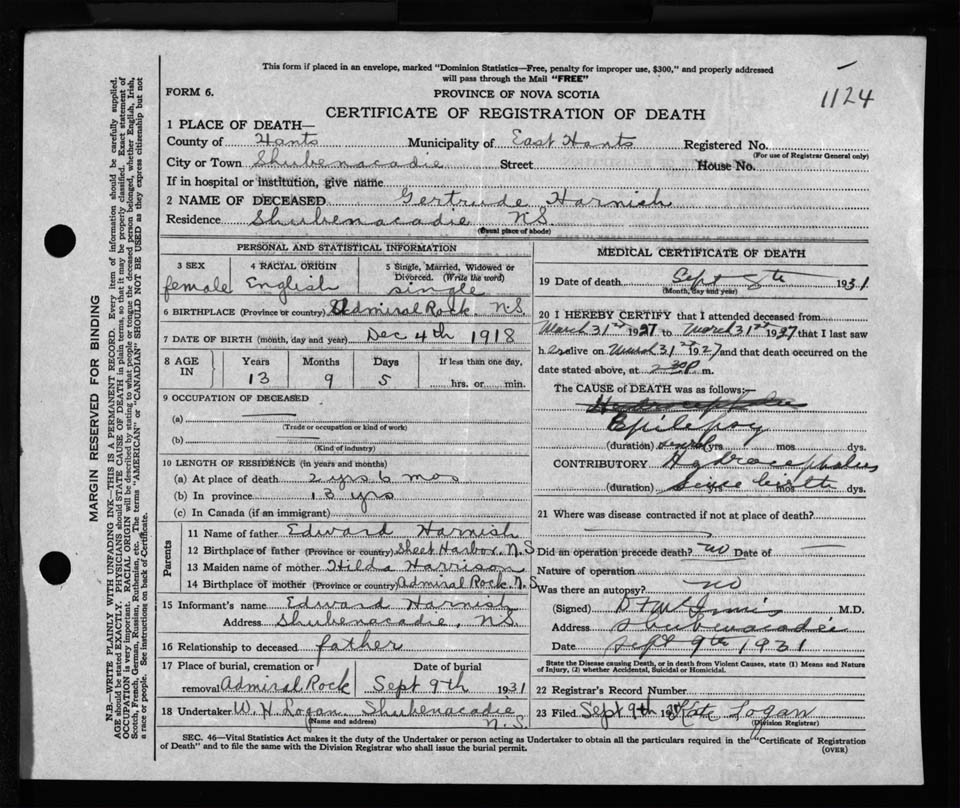 This form if placed in an envelope, marked "Dominion Statistics—Free, penalty for improper use, $300," and properly addressed
will pass through the Mail "FREE"
1124
FORM 6.
PROVINCE OF NOVA SCOTIA
CERTIFICATE OF REGISTRATION OF DEATH
1 PLACE OF DEATH—
County of Hants Municipality of East Hants Registered No.
(For use of Registrar General only)
City or Town Shubenacadie Street House No.
If in hospital or institution, give name
2 NAME OF DECEASED Gertrude Harnish
Residence Shubenacadie N.S.
(Usual place of abode)
PERSONAL AND STATISTICAL INFORMATION
3 SEX 4 RACIAL ORIGIN 5 Single, Married, Widowed or Divorced. (Write the word)
female English single
6 BIRTHPLACE (Province or country) Admiral Rock. N.S.
7 DATE OF BIRTH (month, day and year) Dec 4th 1918
8 AGE IN Years Months Days If less than one day,
13 9 5 hrs. or min.
9 OCCUPATION OF DECEASED
(a) —
(Trade or occupation or kind of work)
(b) —
(Kind of industry)
10 LENGTH OF RESIDENCE (in years and months)
(a) At place of death 2 yrs 6 mos
(b) In province 13 yrs
(c) In Canada (if an immigrant)
Parents
11 Name of father Edward Harnish
12 Birthplace of father (Province or country) Sheet Harbor. N.S
13 Maiden name of mother Hilda Harrison
14 Birthplace of mother (Province or country) Admiral Rock. N.S.
15 Informant's name Edward Harnish
Address Shubenacadie, N.S.
16 Relationship to deceased father
17 Place of burial, cremation or removal Admiral Rock Date of burial Sept 9th 1931
18 Undertaker W. H. Logan Shubenacadie N.S.
(Name and address)
MEDICAL CERTIFICATE OF DEATH
19 Date of death Sept 1931.
(Month, day and year)
20 I HEREBY CERTIFY that I attended deceased from
March 31st 1927 to March 31st 1927 that I last saw
h alive on March 31st 1927 and that death occurred on the
date stated above, at 2.30 P. m.
The CAUSE of DEATH was as follows:—
Epilepsy
(duration) yrs mos dys.
CONTRIBUTORY Hydrocephalus
(duration) Since birth yrs mos dys.
21 Where was disease contracted if not at place of death?
Did an operation precede death? no Date of —
Nature of operation
Was there an autopsy? no
(Signed) D F McInnis M.D.
Address Shubenacadie
Date Sept 9th 1931
State the Disease causing Death, or in death from Violent Causes, state (1) Means and Nature
of Injury, (2) whether Accidental, Suicidal or Homicidal.
22 Registrar's Record Number
23 Filed Sept 9th 1931 Kate Logan
(Division Registrar)
SEC. 46—Vital Statistics Act makes it the duty of the Undertaker or person acting as Undertaker to obtain all the particulars required in the "Certificate of Registration
of Death" and to file the same with the Division Registrar who shall issue the burial permit.
(OVER)
MARGIN RESERVED FOR BINDING
N.B.—WRITE PLAINLY WITH UNFADING INK—THIS IS A PERMANENT RECORD. Every item of information should be carefully supplied.
AGE should be stated EXACTLY. PHYSICIANS should STATE CAUSE OF DEATH in plain terms, so that it may be properly classified. Exact statement of
OCCUPATION is very important. RACIAL ORIGIN will be described by stating to what people or tongue the deceased person belonged, whether English, Irish,
Scotch, French, German, Russian, Ruthenian, etc. The terms "AMERICAN" or "CANADIAN" SHOULD NOT BE USED as they express citizenship but not
a race or people. See instructions on back of Certificate.